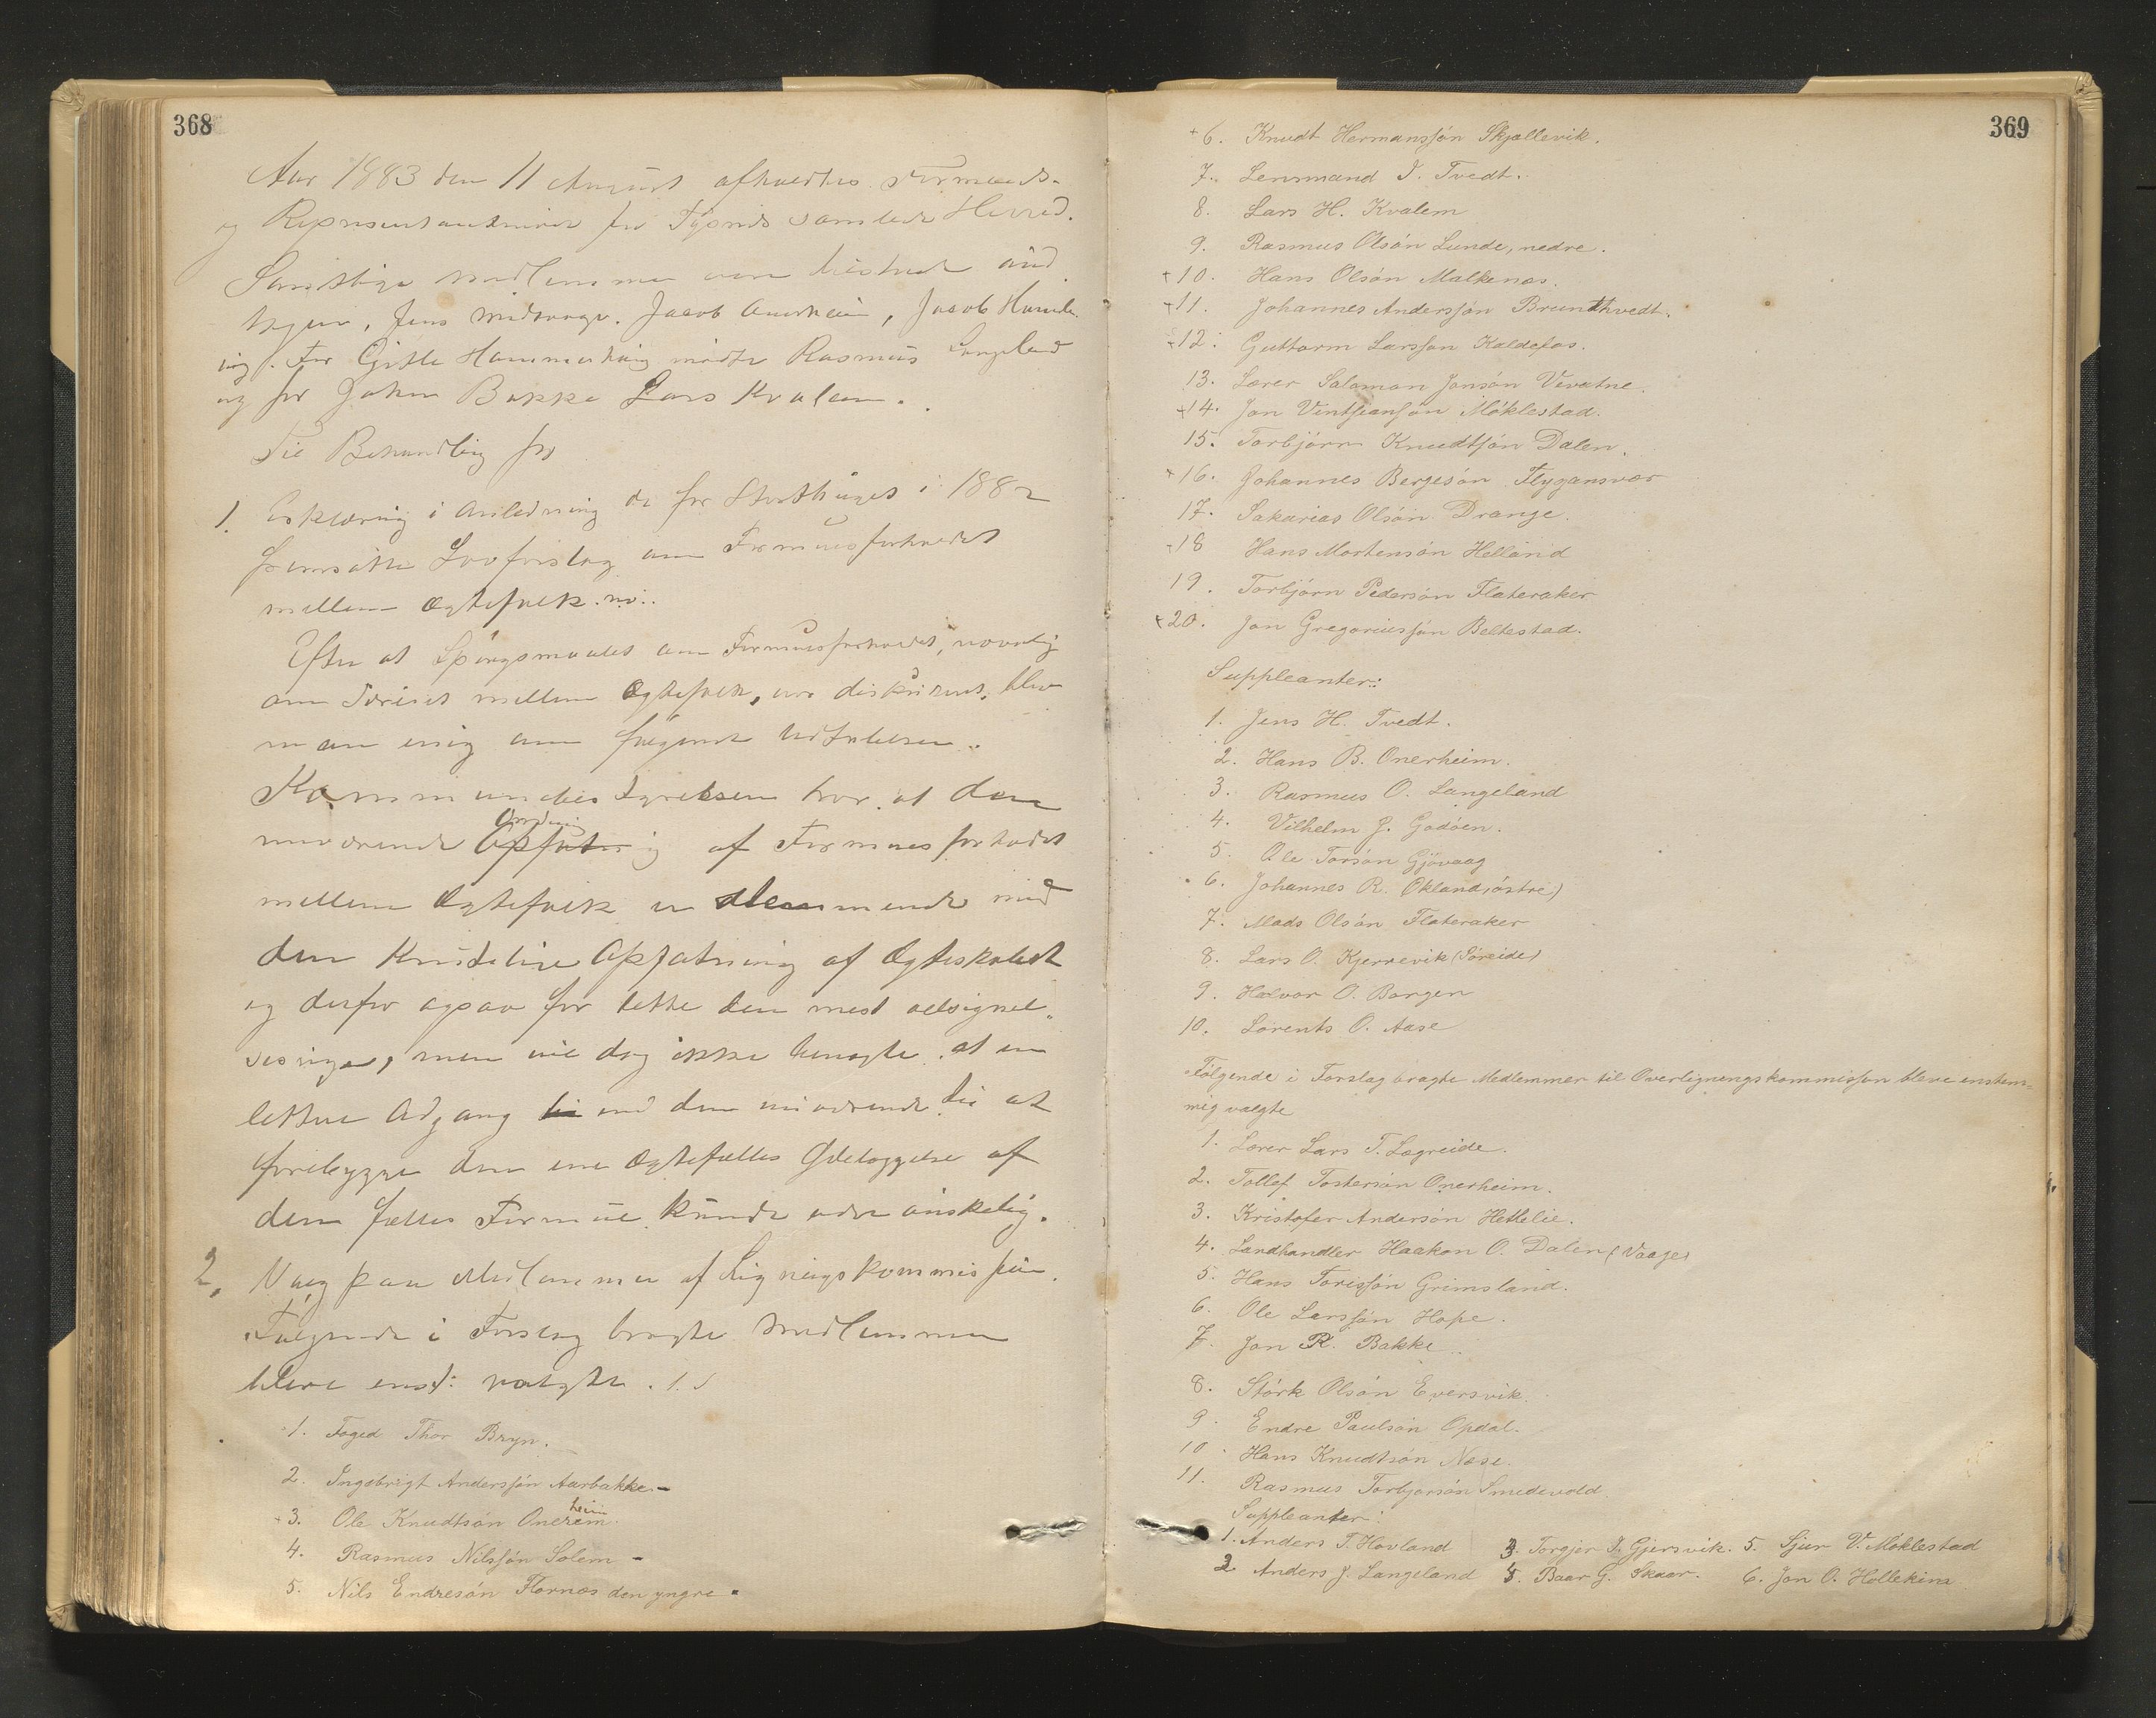 368
Aar 1883 den 11 August afholdtes Formands-
og Repræsentantmøde for Tysnæs samlede Herred.
Samtlige Medlemmer vare tilstede und
tagen, Jens Midtvaage, Jacob Onerheim, Jacob Humle
vig. For Gitle Hammerhaug mødte Rasmus Langeland
og for Johan Bakke Lars Kvalem.
Til Behandling for
1. Erklæring i Anledning de for Storthinget i 1882
fremsatte Lovforslag om Formuesforholdet
mellem Ægtefolk.
Efter at Spørgsmaalet om Formuesforholdet, navnlig
om Særeiet mellem Ægtefolk, var diskuteret, blev
man enig om følgende Udtalelser.
Kommunebestyrelsen tror, at den
nuværende Opfatning Ordning af Formuesforholdet
mellem Ægtefolk er stemmende med
den Kristelige Opfatning af Ægteskabet
og derfor ogsaa for dette den mest velsignel-
sesrige, men vil dog ikke benegte, at en
lettere Adgang til end den nuværende til at
forebygge den ene Ægtefælles Ødeleggelse af
den fælles Formue kunde være ønskelig.
2. Valg paa Medlemmer af Ligningskommissjon.
Følgende i Forslag bragte Medlemmer
bleve enst: valgte.
1. Foged Thor Bryn.
2. Ingebrigt Anderssøn Aarbakke -
+3. Ole Knudtsøn Onerheim.
4. Rasmus Nilssøn Solem -
5. Nils Endresøn Flornæs den yngre.
369
+6. Knudt Hermanssøn Skjællevik.
7. Lensmand I. Tvedt.
8. Lars H. Kvalem
9. Rasmus Olsøn Lunde, nedre.
+10. Hans Olsøn Malkenæs.
+11. Johannes Anderssøn Brundthvedt.
+12. Guttorm Larssøn Kaldefos.
13. Lærer Salomon Jonsøn Vevatne.
+14. Jon Vintsjansøn Møklestad.
15. Torbjørn Knudtsøn Dalen.
+16. Johannes Bergesøn Flygansvær
17. Sakarias Olsøn Drange.
+18 Hans Mortensøn Helland
19. Torbjørn Pedersøn Flateraker
+20. Jon Gregoriussøn Beltestad.
Suppleanter:
1. Jens H. Tvedt.
2. Hans B. Onerheim.
3. Rasmus O. Langeland
4. Vilhelm J. Godøen.
5. Ole Torsøn Gjøvaag
6. Johannes R. Økland (østre)
7. Mads Olsøn Flateraker
8. Lars O. Kjerrevik (Søreide)
9. Halvor O. Borgen
10. Lorents O. Aase
Følgende i Forslag bragte Medlemmer til Overligningskommissjon bleve enstem-
mig valgte
1. Lærer Lars T. Lagreide.
2. Tollef Tostensøn Onerheim.
3. Kristofer Andersøn Hettelie.
4. Landhandler Haakon O. Dalen (Vaage)
5. Hans Torissøn Grimsland.
6. Ole Larssøn Hope.
7. Jon R. Bakke.
8. Størk Olsøn Eversvik.
9. Endre Paulsøn Opdal.
10. Hans Knudtsøn Nese.
11. Rasmus Torbjørnsøn Smedevold.
Suppleanter:
1. Anders T. Hovland 3. Torgjer T. Gjersvik. 5. Sjur V. Møklestad
2 Anders J. Langeland 4. Baar G. Skaar. 6. Jon O. Hollekim